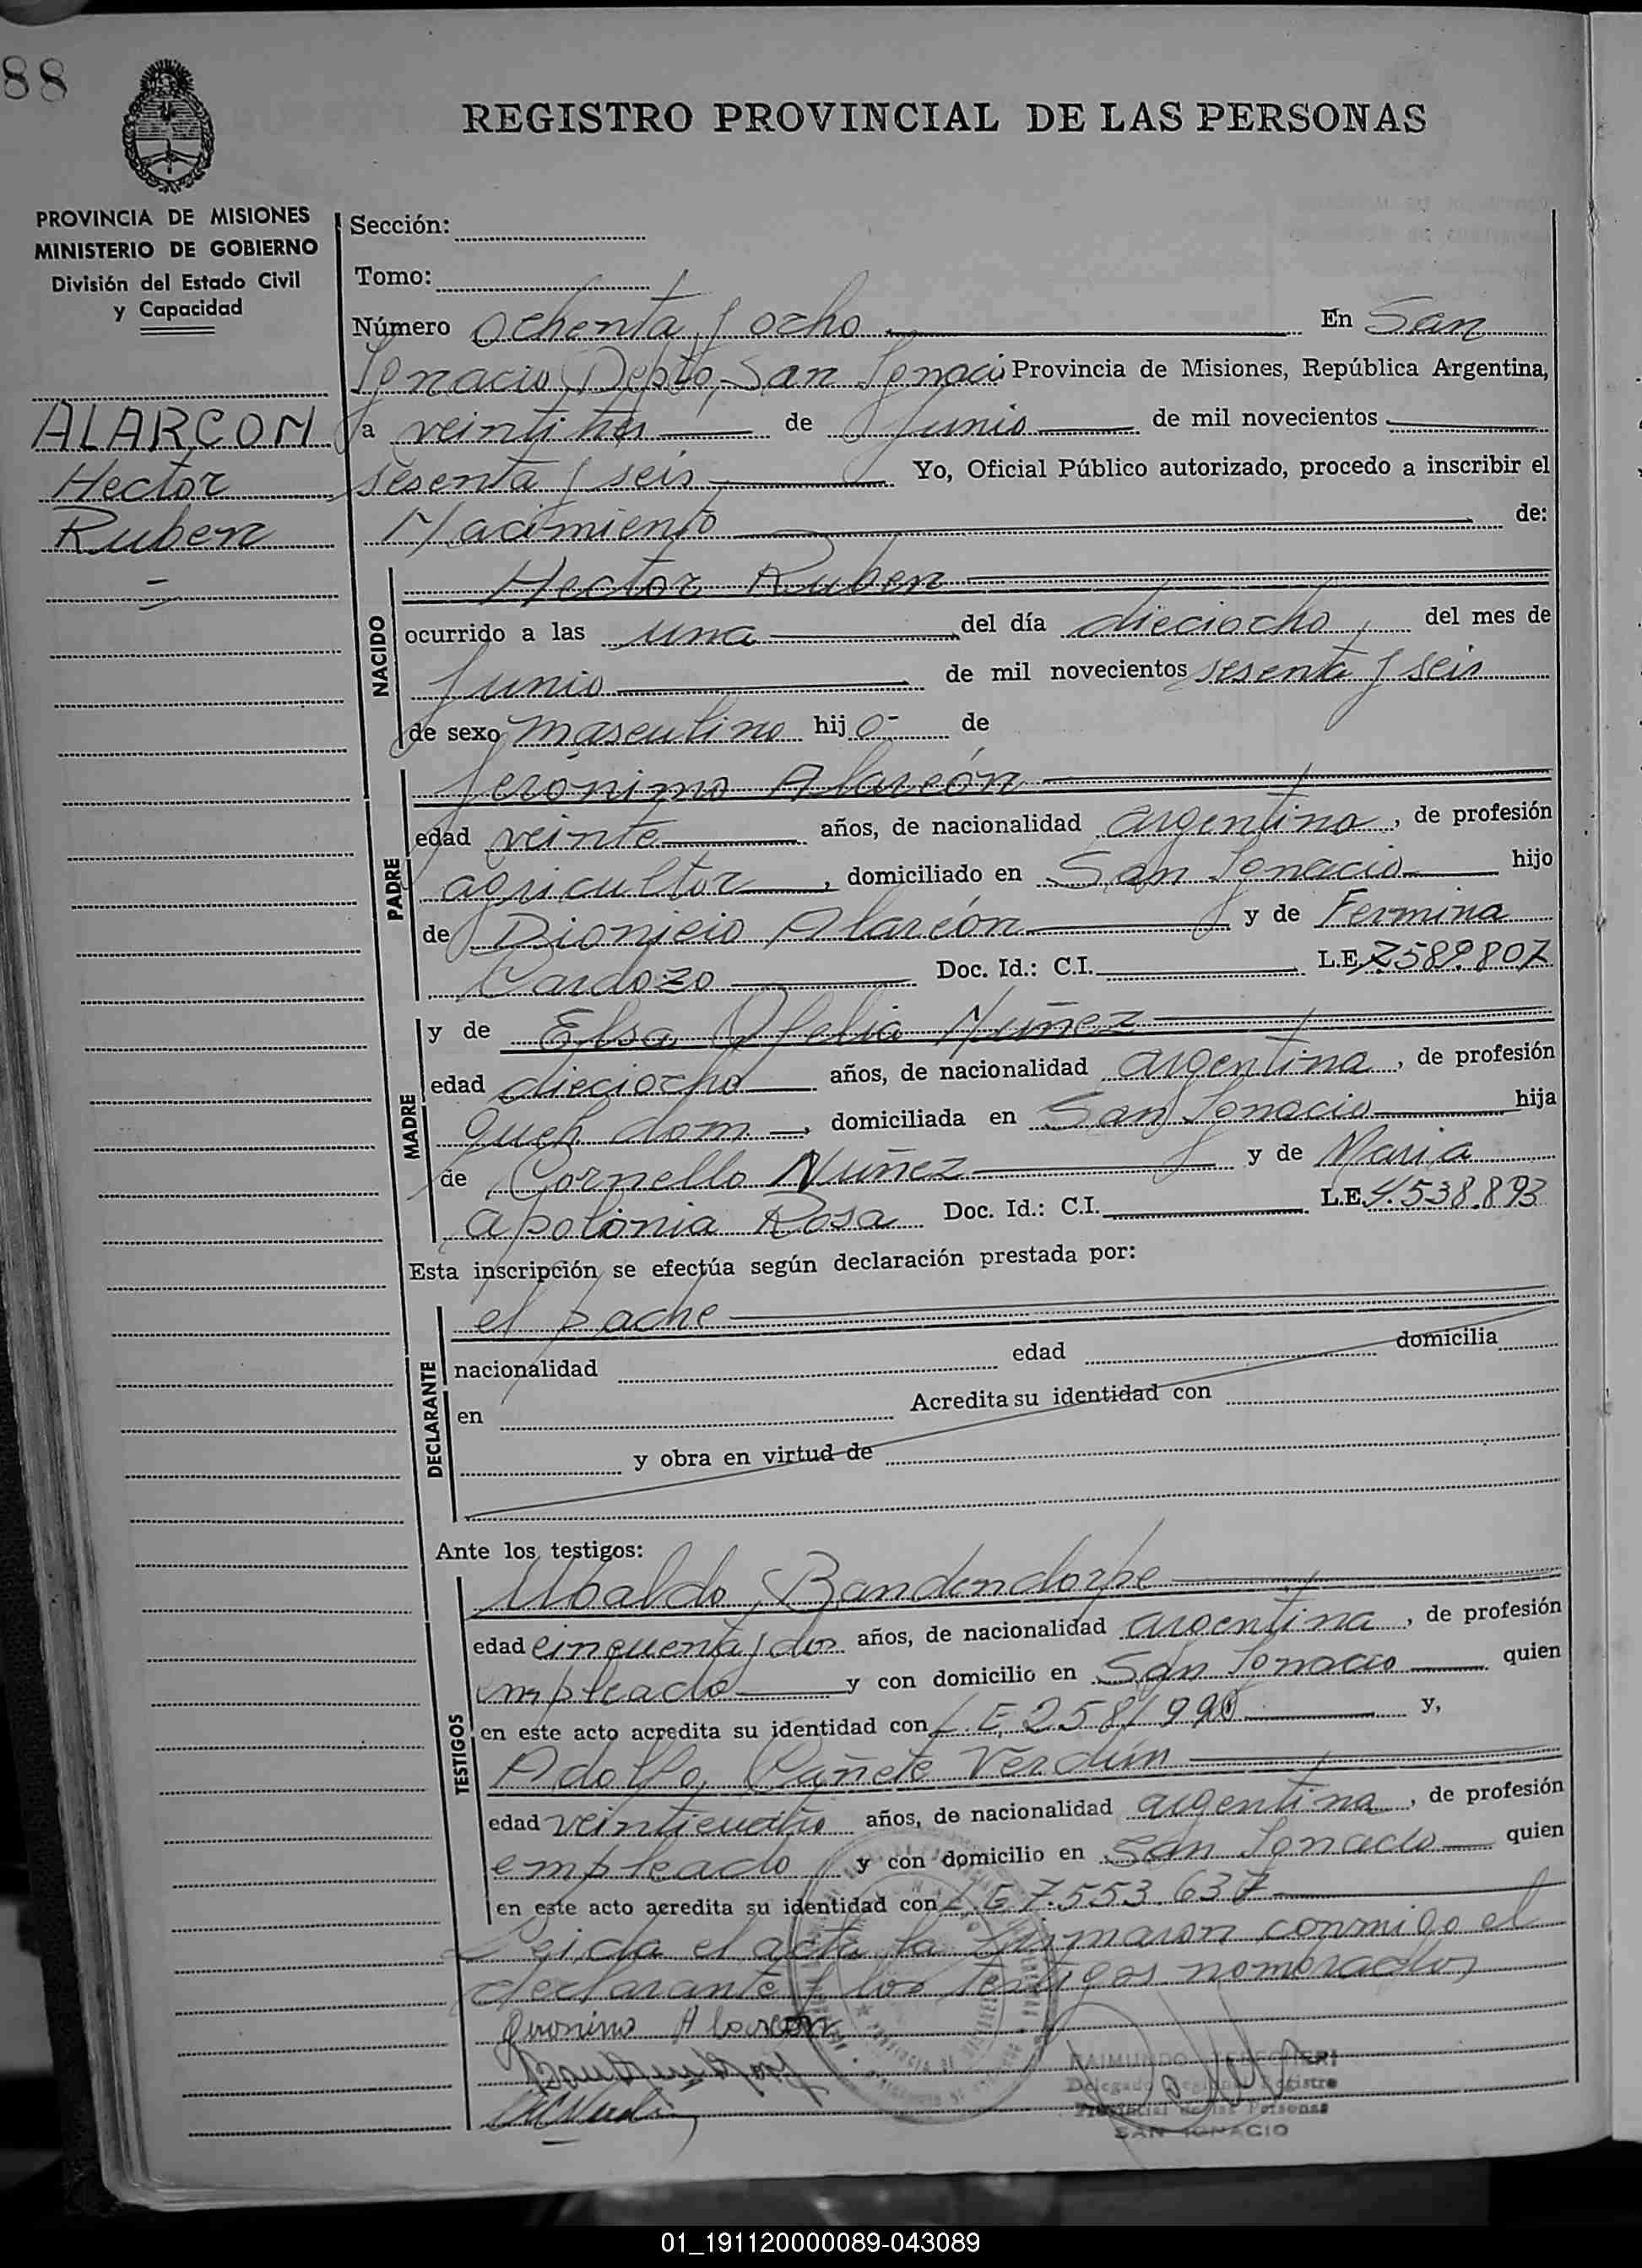 88
REGISTRO PROVINCIAL DE LAS PERSONAS
PROVINCIA DE MISIONES
MINISTERIO DE GOBIERNO
División del Estado Civil
y Capacidad
ALARCON
Hector
Ruben
Sección:
Tomo:
Número ochenta y ocho En San
Ignacio Depto, San Ignacio Provincia de Misiones, República Argentina,
a veintitres de Junio de mil novecientos
sesenta y seis Yo, Oficial Público autorizado, procedo a inscribir el
Nacimiento de:
NACIDO
Hector Ruben
ocurrido a las una del día dieciocho, del mes de
Junio de mil novecientos sesenta y seis
de sexo masculino hijo- de
PADRE
Jerónimo Alarcón
edad veinte años, de nacionalidad argentino, de profesión
agricultor, domiciliado en San Ignacio hijo
de Dionicio Alarcón y de Fermina
Cardozo Doc. Id.: C.I. L.E. 7589.807
MADRE
y de Elsa Ofelia Nuñez
edad dieciocho años, de nacionalidad argentina, de profesión
queh dom, domiciliada en San Ignacio hija
de Cornello Nuñez y de Maria
apolonia Rosa Doc. Id.: C.I. L.E. 4.538.893
Esta inscripción se efectúa según declaración prestada por:
DECLARANTE
el padre
nacionalidad edad domicilia
en Acredita su identidad con
y obra en virtud de
Ante los testigos:
TESTIGOS
Ubaldo Bandendorpe
edad cincuenta y dos años, de nacionalidad argentina, de profesión
empleado y con domicilio en San Ignacio quien
en este acto acredita su identidad con L.E. y,
Adolfo Cañete Verdún
edad veinticuatro años, de nacionalidad argentina, de profesión
empleado y con domicilio en San Ignacio quien
en este acto acredita su identidad con L.E. 7.553.637
Leida el acta la firmaron conmigo el
declarante y los testigos nombrados
Jeronimo Alarcon
RAIMUNDO
Delegado Regional Registro
Provincial de las Personas
SAN IGNACIO
01_191120000089-043089